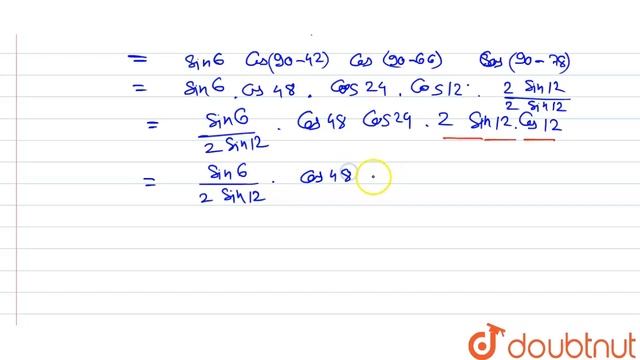 = Sin6 Cos(90-42) Cos (90-66) Cos (90-78)
= Sin6 . Cos 48 . Cos 24 . Cos 12 . 2 Sin12 / 2 Sin12
= Sin6 / 2 Sin12 . Cos 48 Cos 24 . 2 Sin12 . Cos 12
= Sin6 / 2 Sin12 . Cos 48 .
doubtnut